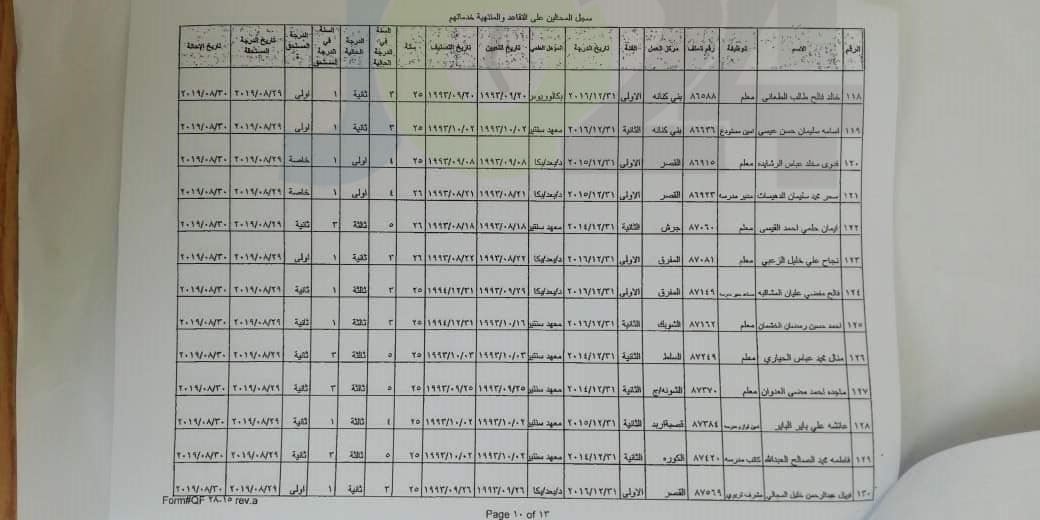 سجل المحالين على التقاعد والمنتهية خدماتهم
الرقم الاسم الوظيفة رقم الملف مركز العمل الفئة تاريخ الدرجة المؤهل العلمي تاريخ التعيين تاريخ التصنيف سنة السنة في الدرجة الحالية الدرجة الحالية السنة في الدرجة المستحق الدرجة المستحق تاريخ الدرجة المستحقة تاريخ الإحالة
١١٨ خالد فالح طالب الطعاني معلم ٨٦٥٨٨ بني كنانه الاولى ٢٠١٦/١٢/٣١ بكالوريوس ١٩٩٣/٠٩/٢٠ ١٩٩٣/٠٩/٢٠ ٢٥ ٣ ثانية ١ اولى ٢٠١٩/٠٨/٢٩ ٢٠١٩/٠٨/٣٠
١١٩ اسامه سليمان حسن عيسى امين مستودع ٨٦٦٣٦ بني كنانه الثانية ٢٠١٦/١٢/٣١ معهد سنتين ١٩٩٣/١٠/٠٢ ١٩٩٣/١٠/٠٢ ٢٥ ٣ ثانية ١ اولى ٢٠١٩/٠٨/٢٩ ٢٠١٩/٠٨/٣٠
١٢٠ فدوى عباس الرشايده معلم ٨٦٩١٥ القصر الاولى ٢٠١٥/١٢/٣١ ١٩٩٣/٠٩/٠٨ ١٩٩٣/٠٩/٠٨ ٢٥ ٤ اولى ١ خاصة ٢٠١٩/٠٨/٢٩ ٢٠١٩/٠٨/٣٠
١٢١ سحر محمد سليمان الدهيسات مدير مدرسه ٨٦٩٢٣ القصر الاولى ٢٠١٥/١٢/٣١ ١٩٩٣/٠٨/٢١ ١٩٩٣/٠٨/٢١ ٢٦ ٤ اولى ١ خاصة ٢٠١٩/٠٨/٢٩ ٢٠١٩/٠٨/٣٠
١٢٢ ايمان حلمي احمد القيسي معلم ٨٧٠٦٠ جرش الثانية ٢٠١٤/١٢/٣١ معهد سنتين ١٩٩٣/٠٨/١٨ ١٩٩٣/٠٨/١٨ ٢٦ ٥ ثالثة ٣ ثانية ٢٠١٩/٠٨/٢٩ ٢٠١٩/٠٨/٣٠
١٢٣ نجاح علي خليل الزعبي معلم ٨٧٠٨١ المفرق الاولى ٢٠١٦/١٢/٣١ ١٩٩٣/٠٨/٢٢ ١٩٩٣/٠٨/٢٢ ٢٦ ٣ ثانية ١ اولى ٢٠١٩/٠٨/٢٩ ٢٠١٩/٠٨/٣٠
١٢٤ فالح مفضي عليان المشاقبه ٨٧١٤٩ المفرق الاولى ٢٠١٦/١٢/٣١ ١٩٩٣/٠٩/٢٩ ١٩٩٤/١٢/٣١ ٢٥ ٣ ثالثة ١ ثانية ٢٠١٩/٠٨/٢٩ ٢٠١٩/٠٨/٣٠
١٢٥ احمد حسين رمضان الخشمان معلم ٨٧١٦٢ الشوبك الثانية ٢٠١٦/١٢/٣١ معهد سنتين ١٩٩٣/١٠/١٦ ١٩٩٤/١٢/٣١ ٢٥ ٣ ثالثة ١ ثانية ٢٠١٩/٠٨/٢٩ ٢٠١٩/٠٨/٣٠
١٢٦ منال محمد عباس الحياري معلم ٨٧٢٤٩ السلط الثانية ٢٠١٤/١٢/٣١ معهد سنتين ١٩٩٣/١٠/٠٣ ١٩٩٣/١٠/٠٣ ٢٥ ٥ ثالثة ٣ ثانية ٢٠١٩/٠٨/٢٩ ٢٠١٩/٠٨/٣٠
١٢٧ ماجده احمد مضى العدوان معلم ٨٧٣٧٠ الشونه/ج الثانية ٢٠١٤/١٢/٣١ معهد سنتين ١٩٩٣/٠٩/٢٥ ١٩٩٣/٠٩/٢٥ ٢٥ ٥ ثالثة ٣ ثانية ٢٠١٩/٠٨/٢٩ ٢٠١٩/٠٨/٣٠
١٢٨ عائشه علي باير الباير ٨٧٣٨٤ قصبة اربد الثانية ٢٠١٥/١٢/٣١ معهد سنتين ١٩٩٣/١٠/٠٢ ١٩٩٣/١٠/٠٢ ٢٥ ٤ ثالثة ١ ثانية ٢٠١٩/٠٨/٢٩ ٢٠١٩/٠٨/٣٠
١٢٩ فاطمه محمد الصالح العبدالله كاتب مدرسه ٨٧٤٢٠ الكوره الثانية ٢٠١٤/١٢/٣١ معهد سنتين ١٩٩٣/١٠/٠٢ ١٩٩٣/١٠/٠٢ ٢٥ ٥ ثالثة ٣ ثانية ٢٠١٩/٠٨/٢٩ ٢٠١٩/٠٨/٣٠
١٣٠ عبدالرحمن خليل المجالي مشرف تربوي ٨٧٥٦٩ القصر الاولى ٢٠١٦/١٢/٣١ ١٩٩٣/٠٩/٢٦ ١٩٩٣/٠٩/٢٦ ٢٥ ٣ ثانية ١ اولى ٢٠١٩/٠٨/٢٩ ٢٠١٩/٠٨/٣٠
Form#QF ٢٨-١٥ rev.a
Page ١٠ of ١٣